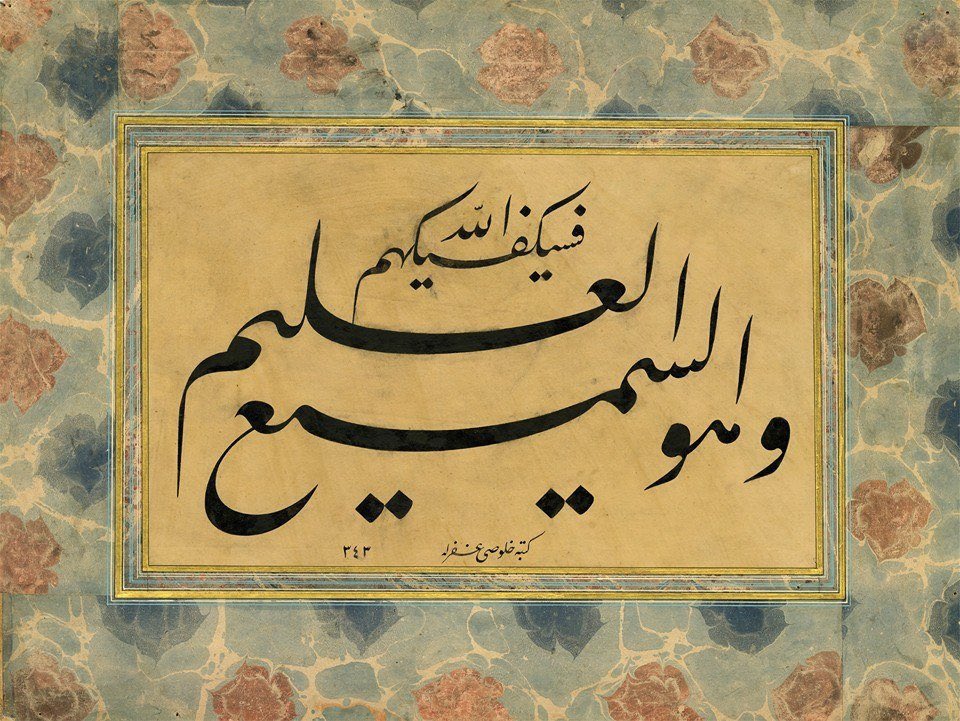 فسيكفيكهم الله
وهو السميع العليم
كتبه خلوصى غفر له ٣٤٣